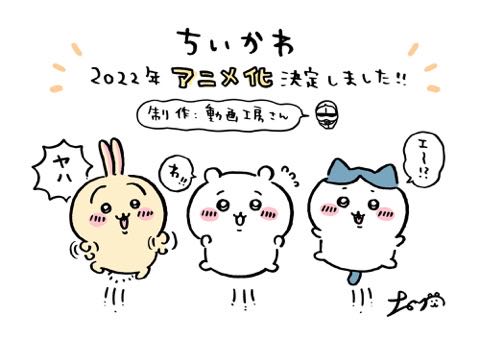 ちいかわ
2022年 アニメ化 決定しました!!
制作:動画工房さん
ヤハ
わ!!
エ〜!?